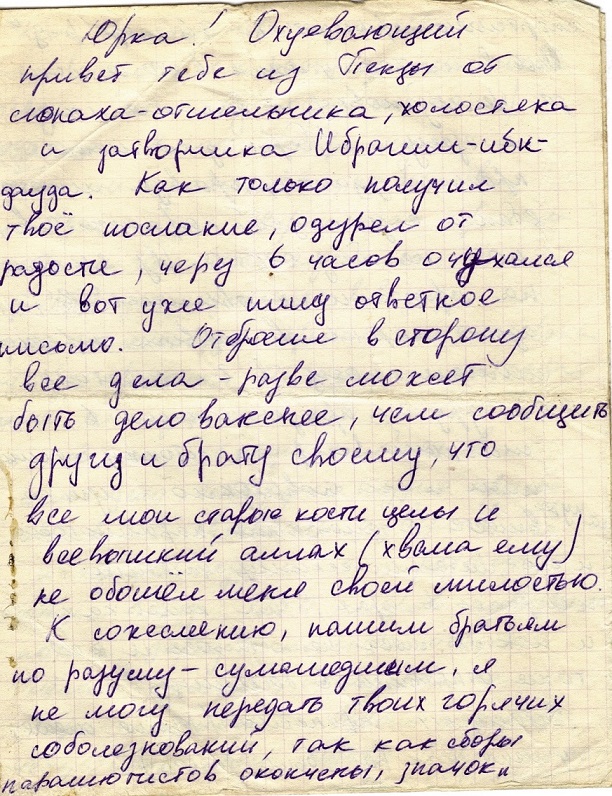 Юрка! Охуевающий
привет тебе из Пензы от
монаха-отшельника, холостяка
и затворника Ибрагим-ибн-
дауда. Как только получил
твоё послание, одурел от
радости, через 6 часов очухался
и вот уже пишу ответное
письмо. Отбросив в сторону
все дела - разве может
быть дело важнее, чем сообщить
другу и брату своему, что
все мои старые кости целы и
всевышний аллах (хвала ему)
не обошёл меня своей милостью.
К сожелению, нашим братьям
по разуму - сумашедшим, я
не могу передать твоих горячих
соболезнований, так как сборы
парашютистов окончены, значок